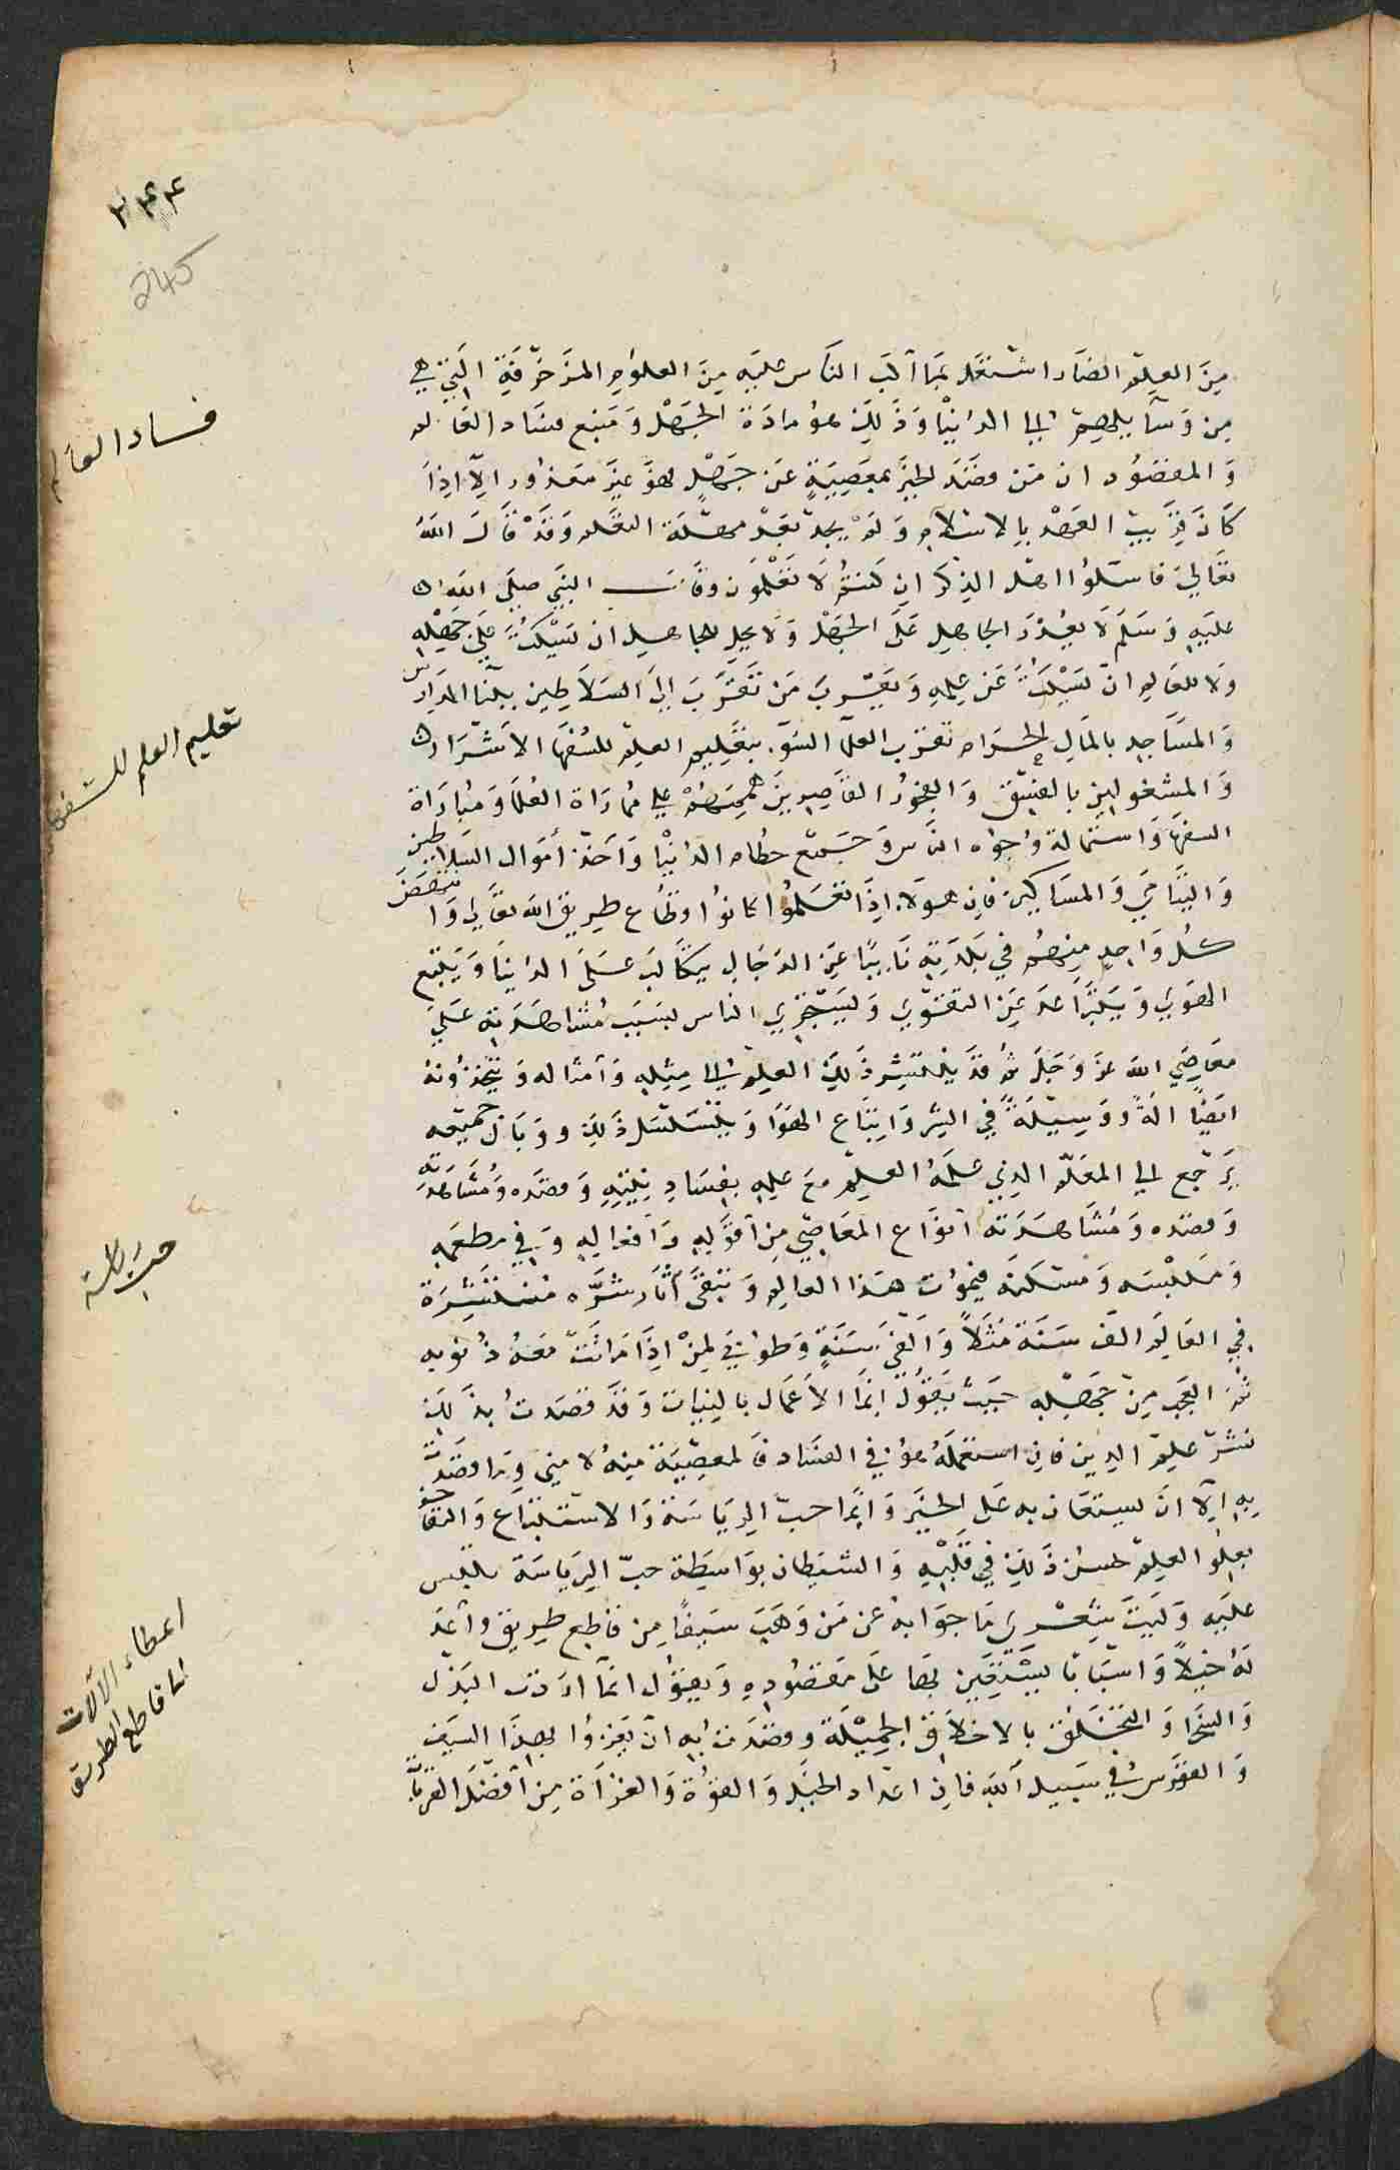 ٢٤٤
245
من العلم الضار اشتغل بما اكب الناس عليه من العلوم المزخرفة التي هي
من وسائلهم الى الدنيا وذلك هو مادة الجهل ومنبع فساد العالم
والمقصود ان من قصد الخير بمعصية عن جهل فهو غير معذور الا اذا
كان قريب العهد بالاسلام ولم يجد بعد مهلة التعلم وقد قال الله
تعالى فاسئلوا اهل الذكر ان كنتم لا تعلمون وقال النبي صلى الله
عليه وسلم لا يعذر الجاهل على الجهل ولا يحل للجاهل ان يسكت على جهله
ولا للعالم ان يسكت عن علمه ويقرب من تقرب الى السلاطين ببناء المدارس
والمساجد بالمال الحرام تقرب العلماء السوء بتعليم العلم للسفهاء الاشرار
والمشغولين بالفسق والفجور القاصرين هممهم على مماراة العلماء ومباراة
السفهاء واستمالة وجوه الناس وجمع حطام الدنيا واخذ أموال السلاطين
واليتامى والمساكين فان هولاء اذا تعلموا كانوا قطاع طريق الله تعالى وانتهض
كل واحد منهم في بلدته نايبا عن الدجال يتكالب على الدنيا ويتبع
الهوى ويتباعد عن التقوى ويستجري الناس بسبب مشاهدته على
معاصي الله عز وجل ثم قد ينتشر ذلك العلم الى مثله وأمثاله ويتخذونه
ايضا الة ووسيلة في الشر واتباع الهوا ويتسلسل ذلك ووبال جميعه
يرجع الى المعلم الذي علمه العلم مع علمه بفساد نيته وقصده ومشاهدته
وقصده ومشاهدته انواع المعاصي من أقواله وأفعاله وفي مطعمه
وملبسه ومسكنه فيموت هذا العالم وتبقى آثار شره منتشرة
في العالم الف سنة مثلا والفي سنة وطوبى لمن اذا مات ماتت معه ذنوبه
ثم العجب من جهله حيث يقول انما الاعمال بالنيات وقد قصدت بذلك
نشر علم الدين فان استعمله هو في الفساد فالمعصية منه لا مني وما قصدت
به الا ان يستعان به على الخير وانما حب الرياسة والاستتباع والتفاخر
بعلو العلم حسن ذلك في قلبه والشيطان بواسطة حب الرياسة يلبس
عليه وليت شعري ما جوابه عن من وهب سيفا من قاطع طريق واعد
له خيلا واسبابا يستعين بها على مقصوده ويقول انما اردت البذل
والسخا والتخلق بالاخلاق الجميلة وقصدت به ان يغزوا بهذا السيف
والفرس في سبيل الله فان اعداد الخيل والقوة والغزاة من أفضل القربات
فساد العالم
تعليم العلم للسفهاء
حب رياسة
اعطاء الآلات
لقاطع الطريق